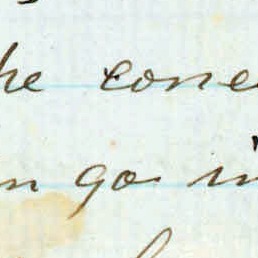 he cone
n go in